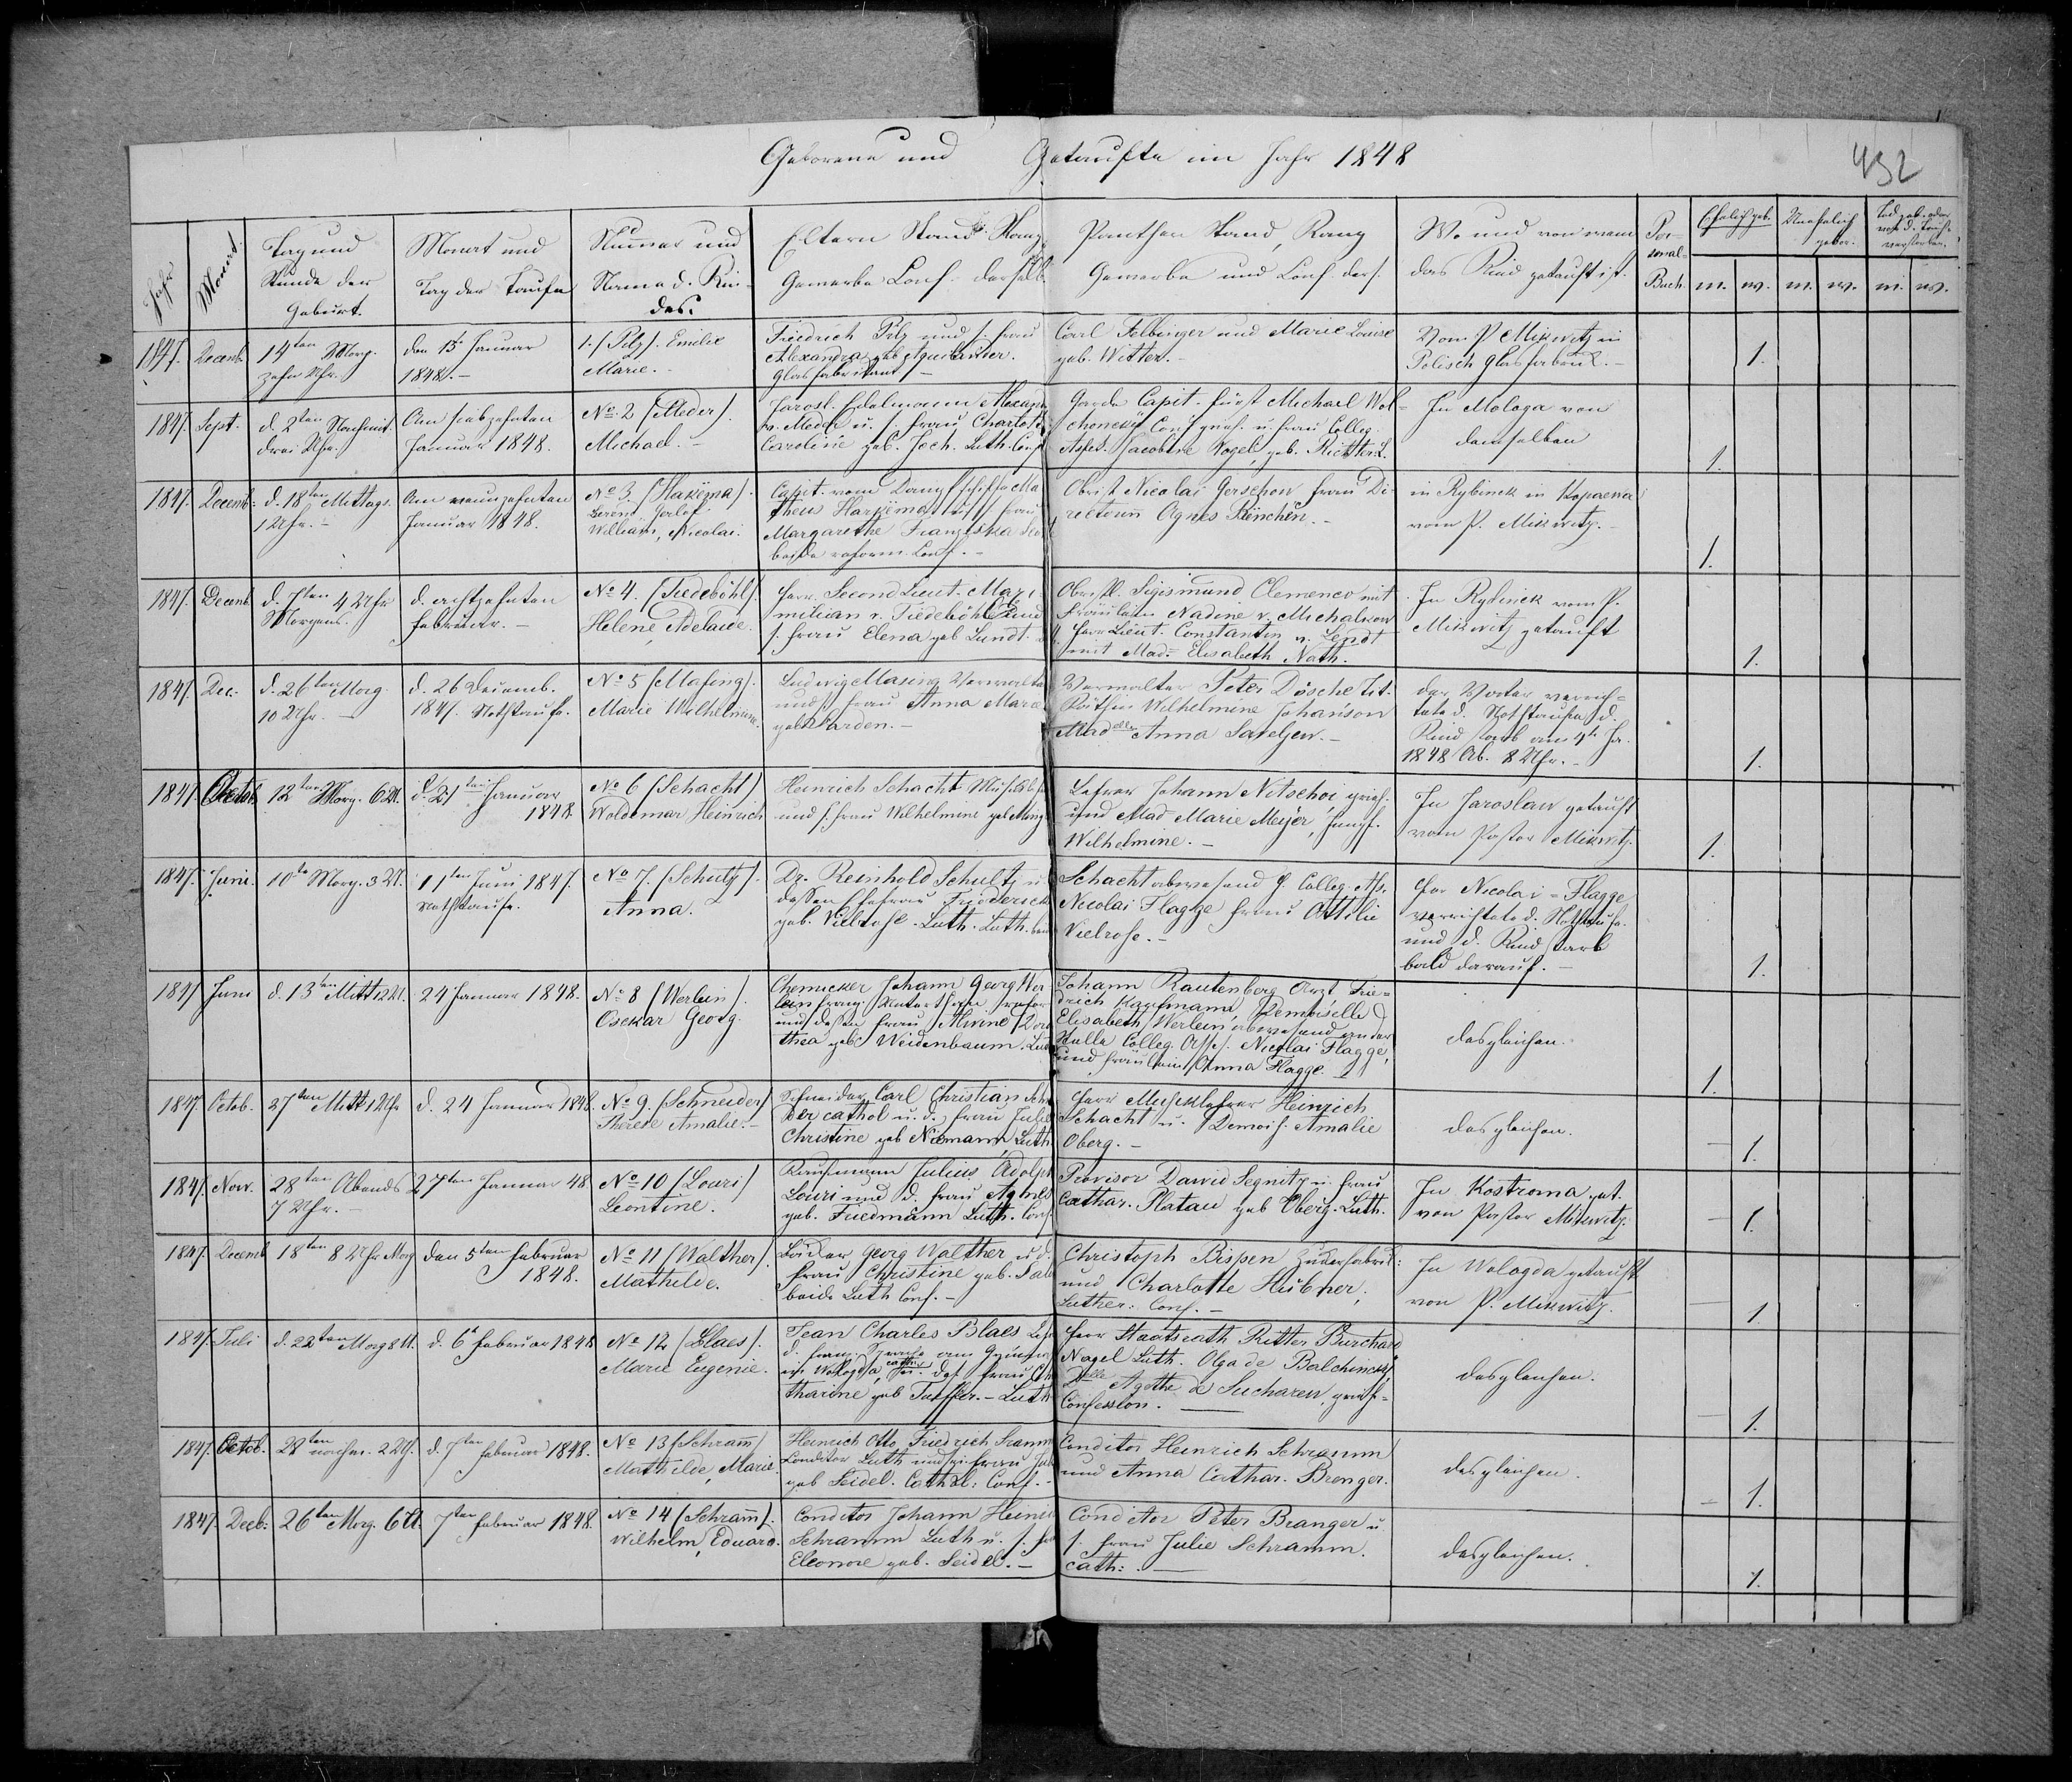 Geborene und Getaufte im Jahr 1848
432
Jahr
Monat
Tag und
Stunde der
Geburt.
Monat und
Tag der Taufe
Numer und
Name d. Kin-
des.
Eltern Stand, Rang
Gewerbe Conf. derselb.
Pauthen Stand, Rang
Gewerbe und Conf. ders.
Wo und von wem
das Kind getauft ist.
Per-
sonal-
Buch.
Ehelich geb.
Unehelich
gebor.
Tod geb. oder
vor d. Taufe
verstorben.
m. w. m. w. m. w.
1847. Decemb.
14ten Morg.
zehn Uhr.
den 15 Januar
1848.-
1. /Pilz/. Emilie
Marie.
Friedrich Pilz und s. Frau
Alexandra geb.
Glasfabrikant.
Carl Felbinger und Marie Louise
geb. Witter.-
Vom P. Mikwitz in
Polisch Glasfabrik.-
1.
1847. Sept.
d. 2ten Nachmit.
drei Uhr.
Am siebzehnten
Januar 1848.
No 2 /Meder/.
Michael.-
Jarosl. Edelmann Alexand
v. Meder u. s. Frau Charlotte
Caroline geb. Joch. Luth. Conf.
Garde Capit. Fürst Michael Wol-
chonsky Conf. griech. u. Frau Colleg.
Asses. Jacobine Vogel, geb. Richter. L.
In Mologa von
demselben
1.
1847. Decemb.
d. 18ten Mittags
12 Uhr.-
Am neunzehnten
Januar 1848.
No 3. /Harkema/.
William, Nicolai.
Capit. vom Dampfschiffe Ma
theus Harkema u. s. Frau
Margarethe Franziska
beide reform. Conf.-
Obrist Nicolai Gerschow Frau Di-
rectorin Agnes München.-
in Rybinsk in Kopaewa
vom P. Mikwitz.-
1.
1847. Decemb.
d. 7ten 4 Uhr
Morgens.
d. achtzehnten
Februar.-
No 4. /Tiedeböhl/.
Helene, Adelaide.
Herr Second Lieut. Maxi
milian v. Tiedeböhl und
s. Frau Elena geb. Lundt.
Obrstl. Sigismund Clemenco mit
Fräulein Nadine v. Michalkow
Herr Lieut. Constantin v. Lendt
mit Mad. Elisabeth Nath.
In Rybinsk vom P.
Mikwitz getauft
1.
1847. Dec.
d. 26ten Morg.
10 Uhr.-
d. 26 Decemb.
1847. Nothtaufe.
No 5 /Masing/.
Marie Wilhelmine.
Ludwig Masing Verwalter
und s. Frau Anna Mara
geb. Parden.-
Verwalter Peter Dösche Tit.
Räthin Wilhelmine Johanson
Madelle Anna Saveljew.-
der Vater verrich-
tete d. Nothtaufe d.
Kind starb am 4t Ja.
1848 Ab. 8 Uhr.-
1.
1847. Octob.
12ten Morg. 6 U.
d. 21ten Januar
1848.
No 6 /Schacht/
Woldemar Heinrich
Heinrich Schacht Musiklehr
und s. Frau Wilhelmine geb. Ming
Lehrer Johann Netschoi griech.
und Mad Marie Meyer, Jungf.
Wilhelmine.-
In Jaroslaw getauft
vom Pastor Mikwitz.
1.
1847. Juni.
10te Morg. 3 U.
11ten Juni 1847.
Nothtaufe.
No 7. /Schultz/.
Anna.
Dr. Reinhold Schultz u
dessen Ehefrau Friederick
geb. Vielrose. Luth. Luth.
Schacht abwesend f. Colleg. Ass.
Nicolai Flagge Frau Ottilie
Vielrose.-
Herr Nicolai Flagge
verrichtete d. Nothtaufe
und d. Kind starb
bald darauf.-
1.
1847 Juni
d. 13ten Mitt. 12 U.
24 Januar 1848.
No 8 /Werlein/.
Osekar Georg.
Chemicker Johann Georg Wer
lein franz. Unterthan refor
und dessen Frau Alwine Doro
thea geb. Weidenbaum. Luth
Johann Rautenberg Arzt Frie-
drich Kaufmann, Demoiselle
Elisabeth Werlein abwesend an der
Stelle Colleg. Asses. Nicolai Flagge,
und Fräulein Anna Flagge.
desgleichen.
1.
1847. Octob.
27ten Mitt 12 Uhr
d. 24 Januar 1848.
No 9. /Schneider/
Therese Amalie.-
Schneider Carl Christian Schnei
der cathol u. d. Frau Julie
Christine geb. Niemann Luth.
Herr Musiklehrer Heinrich
Schacht u. Demois. Amalie
Oberg.-
desgleichen.
1.
1847. Nov.
28ten Abends
7 Uhr.-
27ten Januar 48
No 10 /Louri/
Leontine.
Kaufmann Julius Adolph
Louri und d. Frau Agnes
geb. Friedmann Luth. Conf
Provisor Dawid Segnitz u. Frau
Cathar. Platau geb. Oberg. Luth.
In Kostroma get.
von Pastor Mikwitz.
1.
1847. Decemb
18ten 8 Uhr Morg
den 5ten Februar
1848.
No 11 /Walther/.
Mathilde.
Georg Walther u. d.
Frau Christine geb.
beide Luth Conf.-
Christoph Bispen Zuckerfabrik:
und Charlotte Hübner,
Luther: Conf.-
In Wologda getauft
von P. Mikwitz.
1
1847. Juli
d. 22ten Morg 8 U.
d. 6t Februar 1848
No 12 /Blaes/.
Marie Eugenie.
Jean Charles Blaes Leh
d. franz. Sprache am Gymnas
in Wologda, cathol. des. Frau Ca
tharine geb. Tuffler.- Luth
Herr Staatsrath Ritter Burchard
Nagel Luth. Olga de Balchinsky,
Dlle Agathe d. Sucharew, griech-
Confession.
desgleichen.
1.
1847. Octob.
28ten nachm. 2 U.
d. 7ten Februar 1848.
No 13 /Schram/
Mathilde, Marie.
Heinrich Otto Friedrich Sramm
Conditor Luth und s. Frau Jul
geb Seidel. Cathol: Conf.-
Conditor Heinrich Schramm
und Anna Cathar. Brenger.
desgleichen.
1.
1847. Decb:
26ten Morg. 6 U.
7ten Februar 1848.
No 14 /Schram/.
Wilhelm, Eduard.
Conditor Johann Heinri
Schramm Luth u. s. Frau
Eleonore geb. Seidel.-
Conditor Peter Branger u.
s. Frau Julie Schramm.
Cath:.
desgleichen.
1.